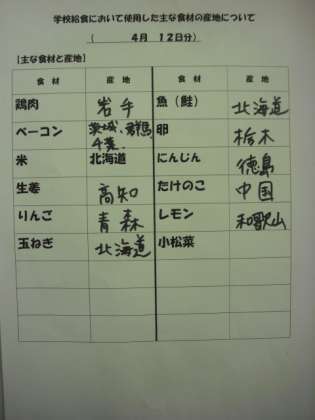 学校給食において使用した主な食材の産地について
（ 4月 12日分）
【主な食材と産地】
食 材 産 地 食 材 産 地
鶏肉 岩手 魚（鮭） 北海道
ベーコン 茨城、群馬 千葉 卵 栃木
米 北海道 にんじん 徳島
生姜 高知 たけのこ 中国
りんご 青森 レモン 和歌山
玉ねぎ 北海道 小松菜